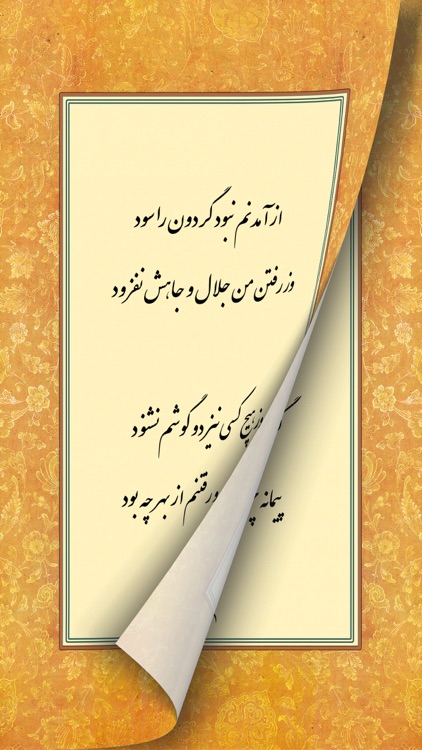 از آمدنم نبود گردون را سود
وز رفتن من جلال و جاهش نفزود
وز هیچ کسی نیز دو گوشم نشنود
پیمانه و رفتنم از بهر چه بود